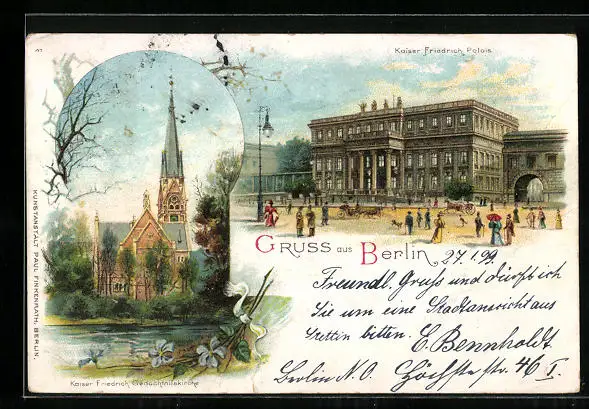 47
Kaiser Friedrich Palais
KUNSTANSTALT PAUL FINKENRATH, BERLIN.
GRUSS aus Berlin
27.1.99.
Freundl. Gruß und dürft ich
Sie um eine Stadtansicht aus
Stettin bitten. C. Bennholdt.
Berlin N.O. Höchste str. 46 I.
Kaiser Friedrich Gedächtniskirche